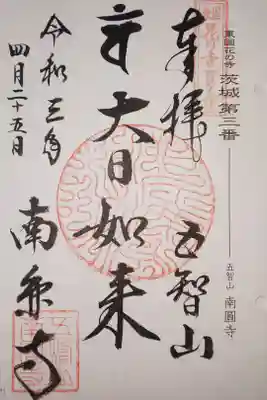 東國花の寺 茨城 第三番
五智山 南圓寺
奉拝 五智山
大日如来
令和三年
四月二十五日
南圓寺